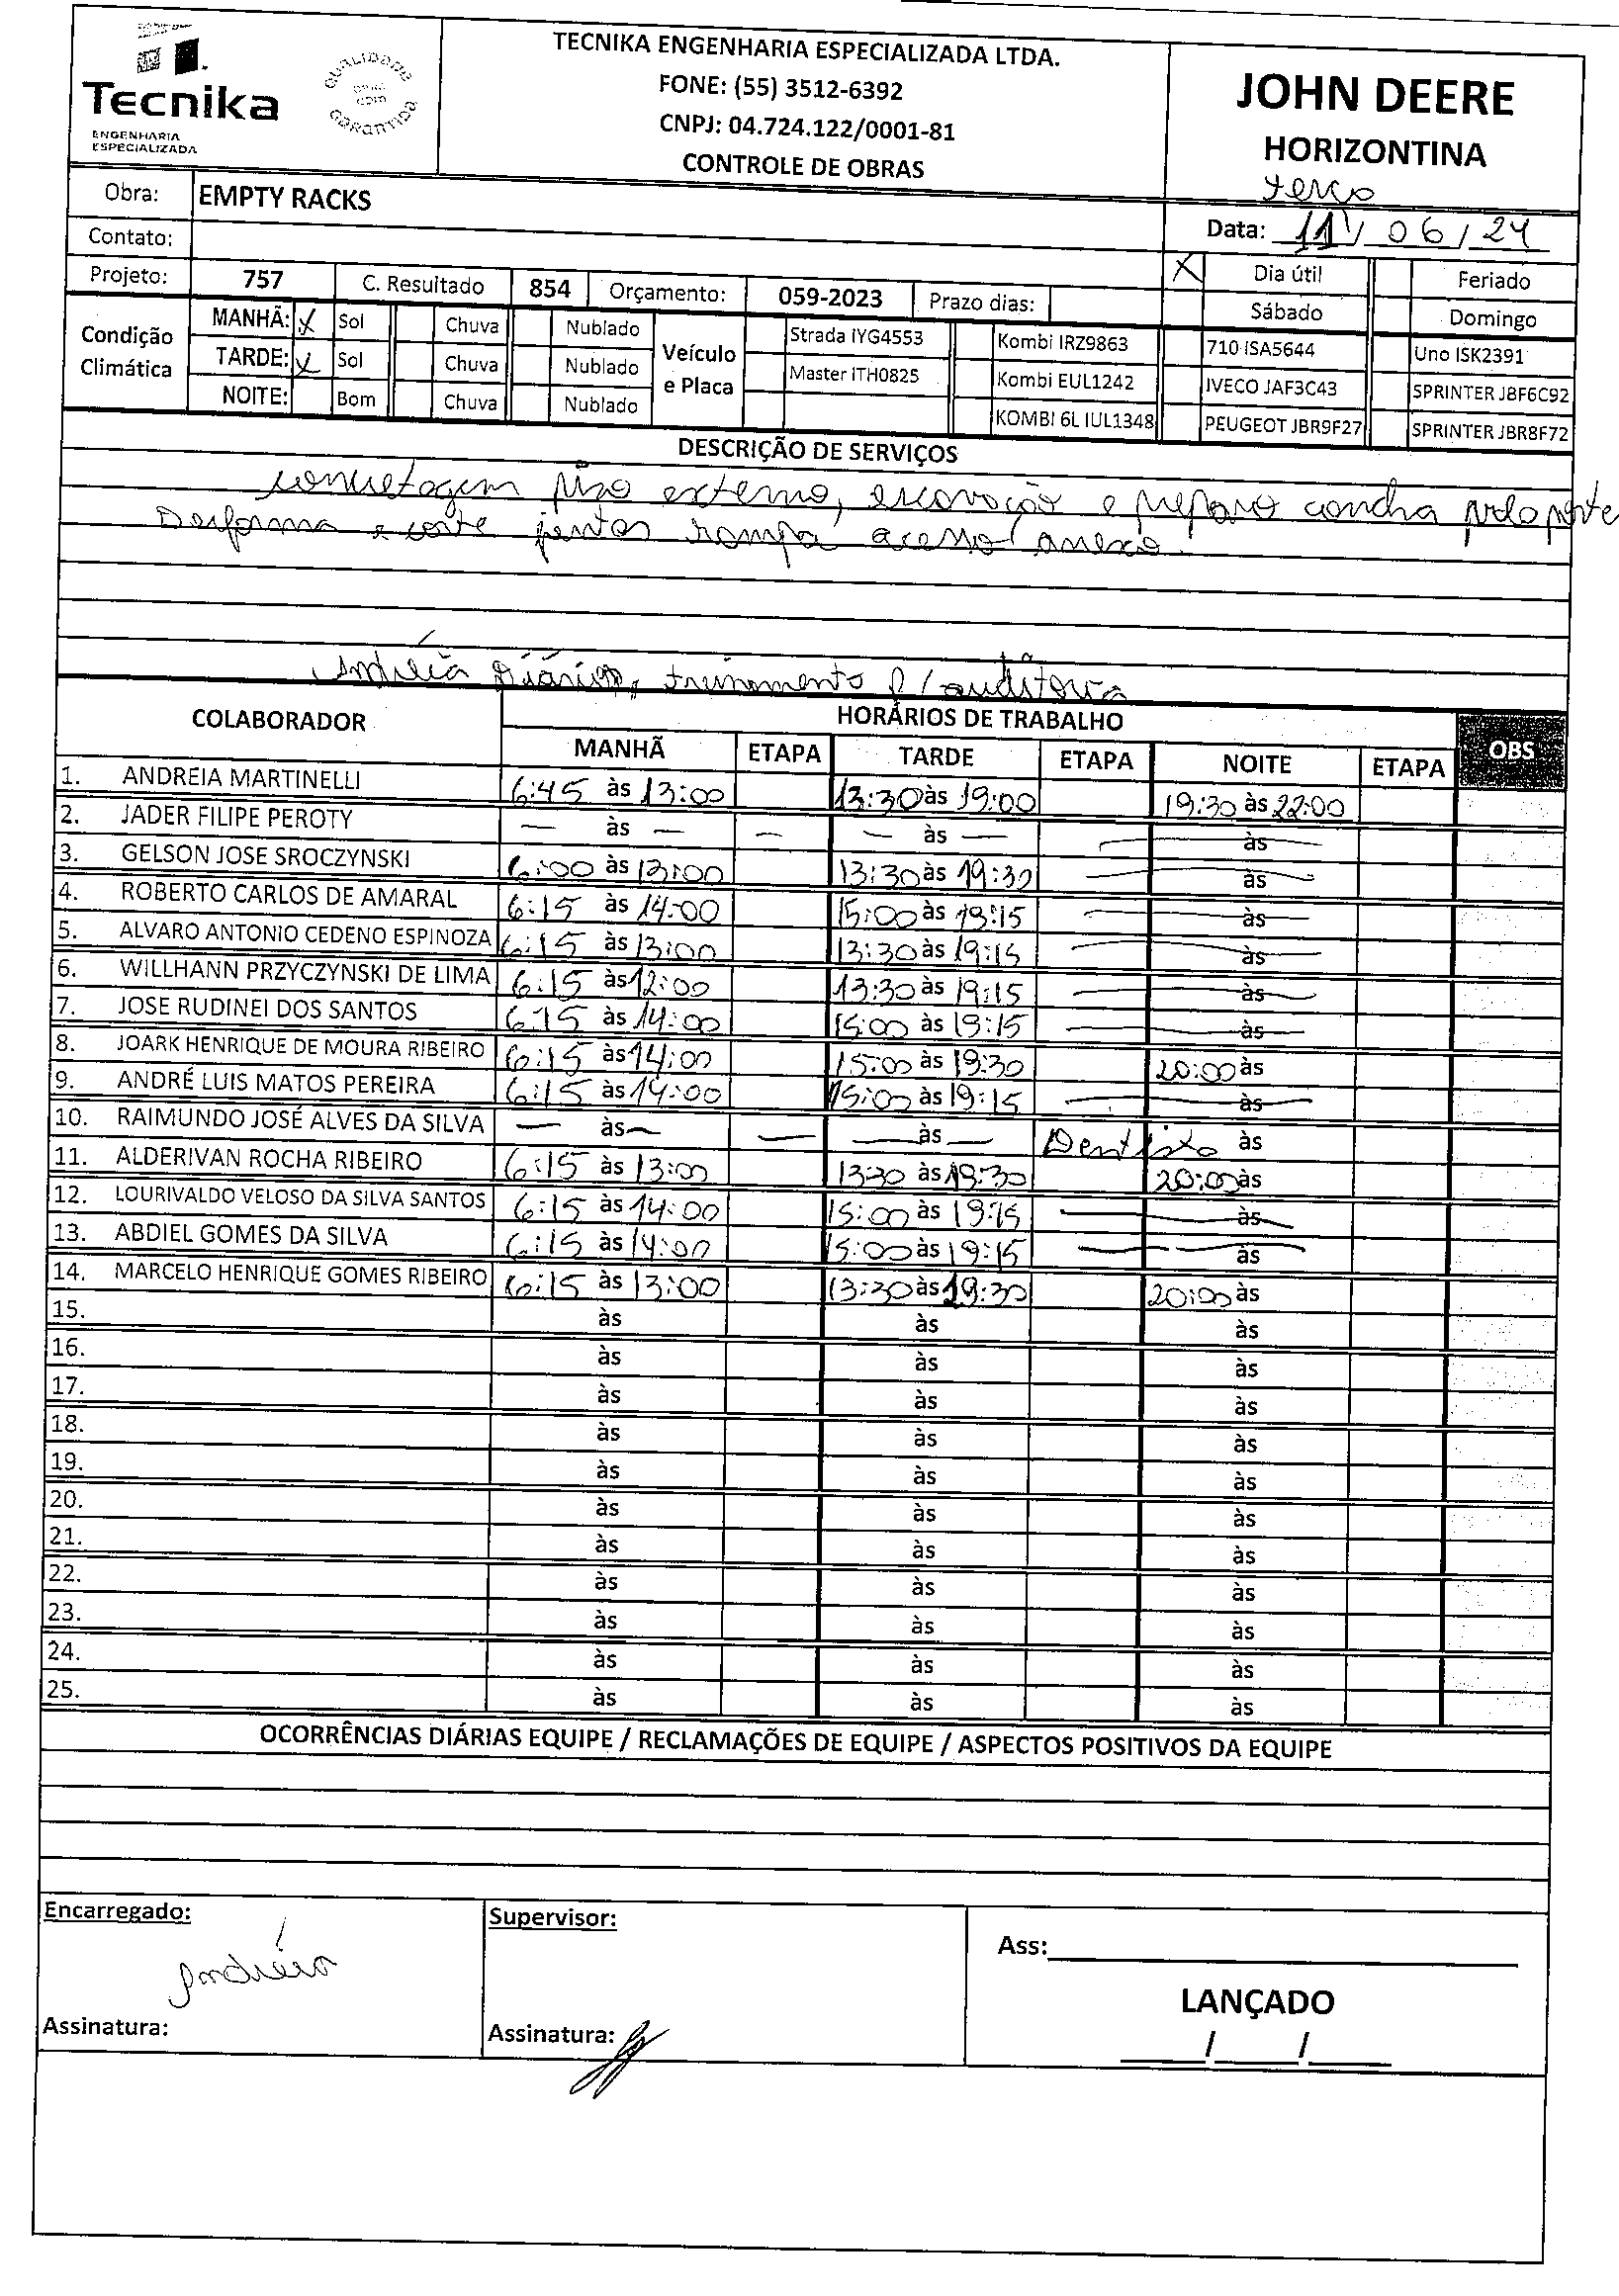 Tecnika
ENGENHARIA
ESPECIALIZADA
QUALIDADE
COM
GARANTIDA
TECNIKA ENGENHARIA ESPECIALIZADA LTDA.
FONE: (55) 3512-6392
CNPJ: 04.724.122/0001-81
CONTROLE DE OBRAS
JOHN DEERE
HORIZONTINA
terça
Data: 11/06/24
Obra: EMPTY RACKS
Contato:
Projeto: 757 C. Resultado 854 Orçamento: 059-2023 Prazo dias:
X Dia útil Feriado
Sábado Domingo
Condição Climática
MANHÃ: X Sol Chuva Nublado
TARDE: X Sol Chuva Nublado
NOITE: Bom Chuva Nublado
Veículo e Placa
Strada IYG4553 Kombi IRZ9863 710 ISA5644 Uno ISK2391
Master ITH0825 Kombi EUL1242 IVECO JAF3C43 SPRINTER JBF6C92
KOMBI 6L IUL1348 PEUGEOT JBR9F27 SPRINTER JBR8F72
DESCRIÇÃO DE SERVIÇOS
concretagem piso externo, escavação e preparo concha
Desforma e corte juntas rampa acesso anexo.
Andréia Diários, treinamento p/ auditoria
COLABORADOR HORÁRIOS DE TRABALHO OBS
MANHÃ ETAPA TARDE ETAPA NOITE ETAPA
1. ANDREIA MARTINELLI 6:45 às 13:00 13:30 às 19:00 19:30 às 22:00
2. JADER FILIPE PEROTY — às — — — às — — às
3. GELSON JOSE SROCZYNSKI 6:00 às 13:00 13:30 às 19:30 — às
4. ROBERTO CARLOS DE AMARAL 6:15 às 14:00 15:00 às 19:15 — às
5. ALVARO ANTONIO CEDENO ESPINOZA 6:15 às 13:00 13:30 às 19:15 — às
6. WILLHANN PRZYCZYNSKI DE LIMA 6:15 às 12:00 13:30 às 19:15 — às
7. JOSE RUDINEI DOS SANTOS 6:15 às 14:00 15:00 às 19:15 — às
8. JOARK HENRIQUE DE MOURA RIBEIRO 6:15 às 14:00 15:00 às 19:30 20:00 às
9. ANDRÉ LUIS MATOS PEREIRA 6:15 às 14:00 15:00 às 19:15 — às
10. RAIMUNDO JOSÉ ALVES DA SILVA — às — — — às — Dentista às
11. ALDERIVAN ROCHA RIBEIRO 6:15 às 13:00 13:30 às 19:30 20:00 às
12. LOURIVALDO VELOSO DA SILVA SANTOS 6:15 às 14:00 15:00 às 19:15 — às
13. ABDIEL GOMES DA SILVA 6:15 às 14:00 15:00 às 19:15 — às
14. MARCELO HENRIQUE GOMES RIBEIRO 6:15 às 13:00 13:30 às 19:30 20:00 às
15. às às às
16. às às às
17. às às às
18. às às às
19. às às às
20. às às às
21. às às às
22. às às às
23. às às às
24. às às às
25. às às às
OCORRÊNCIAS DIÁRIAS EQUIPE / RECLAMAÇÕES DE EQUIPE / ASPECTOS POSITIVOS DA EQUIPE
Encarregado: Supervisor:
Andréia
Ass:
LANÇADO
Assinatura: Assinatura:
/ /